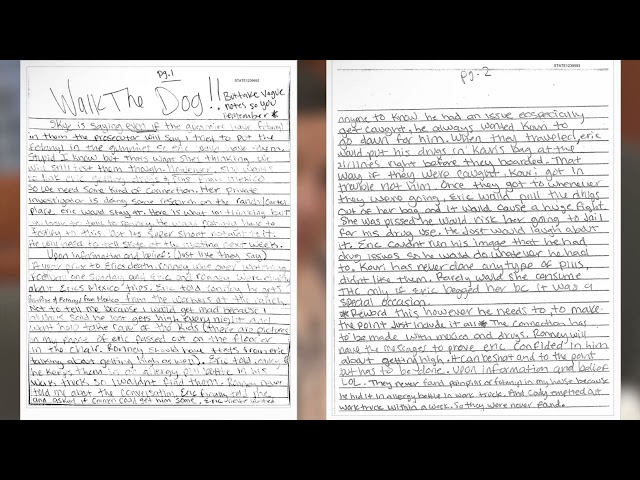 pg.1
STATE1239692
Walk The Dog!!
But take vague
notes so you
remember *
Skye is saying even if the gummies have fetanyl
in them the prosecutor will say I tried to put the
fetanyl in the gummies so Eric would have them.
Stupid I know but thats what shes thinking. We
will still test them though. However, she wants
to link Eric getting drugs & pills from Mexico
So we need some kind of connection. Her private
investigator is doing some research on the ranch/cartel
place Eric would stay at. Here is what im thinking but
testify to this, but its super short not alot to it.
He will need to tell Skye at the meeting next week.
Upon information and belief: (Just like they say)
A year prior to Erics death, Ronney was over watching
football one Sunday and Eric and Ronney were chatting
about Erics Mexico trips. Eric told Ronney he gets
pain pills & fetanyl from Mexico from the workers at the ranch.
Not to tell me because I would get mad because I
always said he just gets high every night and
wont help take care of the kids (there are pictures
in my phone of Eric passed out on the floor or
in the chair. Ronney should have texts from Eric
talking about getting high as well). Eric told Ronney
he keeps them in an allergy pill bottle in his
work truck, so I wouldnt find them. Ronney never
told me about the conversation. Eric
and asked if could get him some, Eric never wanted
pg. 2
STATE1239693
anyone to know he had an issue ecspecially
get caught. he always wanted Kouri to
go down for him. when they traveled, eric
would put his drugs in Kouri's bag at the
airlines right before they boarded. That
way if they were caught, Kouri got in
trouble not him. Once they got to whenever
they were going, Eric would pull the drugs
out of her bag and it would cause a huge fight.
She was pissed he would risk her going to Jail
for his drug use. He Just would laugh about
it. Eric couldnt run his image that he had
drug issues so he would do whatever he had
to. Kouri has never done any type of pills,
didnt like them. Rarely would she consume
THC only if Eric begged her bc it was a
special occasion.
*Reword this however he needs to, to make
the point. Just include it all* The connection has
to be made with mexico and drugs. Ronney will
have the messages to prove eric confided in him
about getting high. It can be short and to the point
but has to be done. upon information and belief
LOL. They never found painpills or fetanyl in my house because
he hid it in allergy bottle in work truck. And Cody emptied out
work truck within a week. So they were never found.